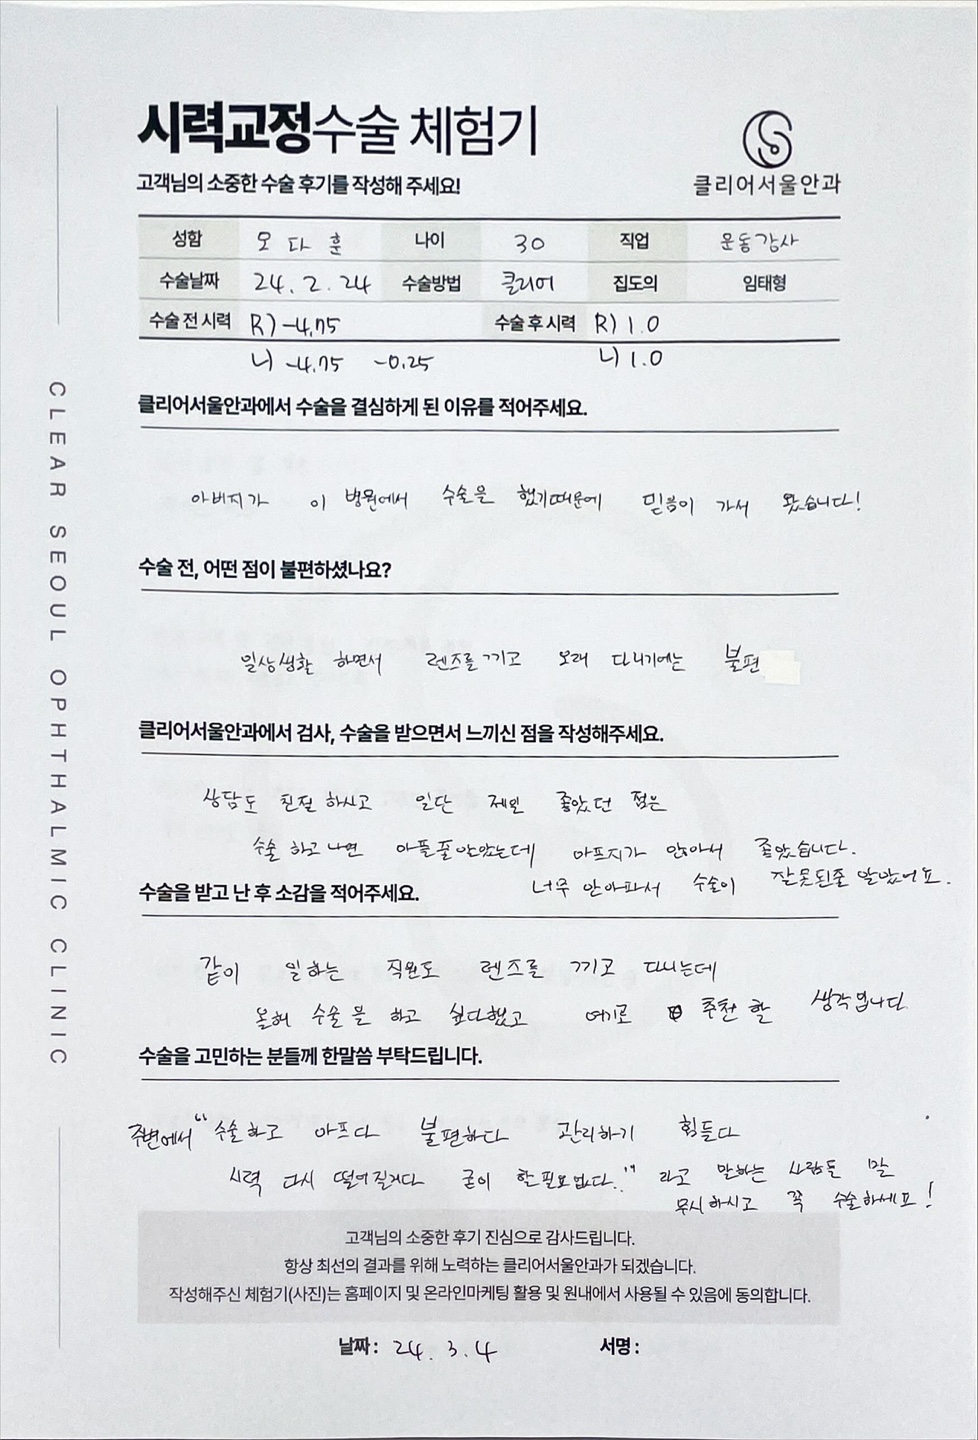 시력교정수술 체험기
고객님의 소중한 수술 후기를 작성해 주세요!
클리어서울안과
성함 오다훈 나이 30 직업 운동강사
수술날짜 24. 2. 24 수술방법 클리어 집도의 임태형
수술 전 시력 R) -4.75 수술 후 시력 R) 1.0
L) -4.75 -0.25 L) 1.0
CLEAR SEOUL OPHTHALMIC CLINIC
클리어서울안과에서 수술을 결심하게 된 이유를 적어주세요.
아버지가 이 병원에서 수술을 했기때문에 믿음이 가서 왔습니다!
수술 전, 어떤 점이 불편하셨나요?
일상생활 하면서 렌즈를 끼고 오래 다니기에는 불편
클리어서울안과에서 검사, 수술을 받으면서 느끼신 점을 작성해주세요.
상담도 친절 하시고 일단 제일 좋았던 점은
수술 하고나면 아플줄알았는데 아프지가 않아서 좋았습니다.
너무 안아파서 수술이 잘못된줄 알았어요.
수술을 받고 난 후 소감을 적어주세요.
같이 일하는 직원도 렌즈를 끼고 다니는데
올해 수술을 하고 싶다했고 여기로 추천 할 생각입니다
수술을 고민하는 분들께 한말씀 부탁드립니다.
주변에서 "수술하고 아프다 불편하다 관리하기 힘들다
시력 다시 떨어질거다 굳이 할필요없다." 라고 말하는 사람들 말
무시하시고 꼭 수술하세요!
고객님의 소중한 후기 진심으로 감사드립니다.
항상 최선의 결과를 위해 노력하는 클리어서울안과가 되겠습니다.
작성해주신 체험기(사진)는 홈페이지 및 온라인마케팅 활용 및 원내에서 사용될 수 있음에 동의합니다.
날짜 : 24. 3. 4 서명 :